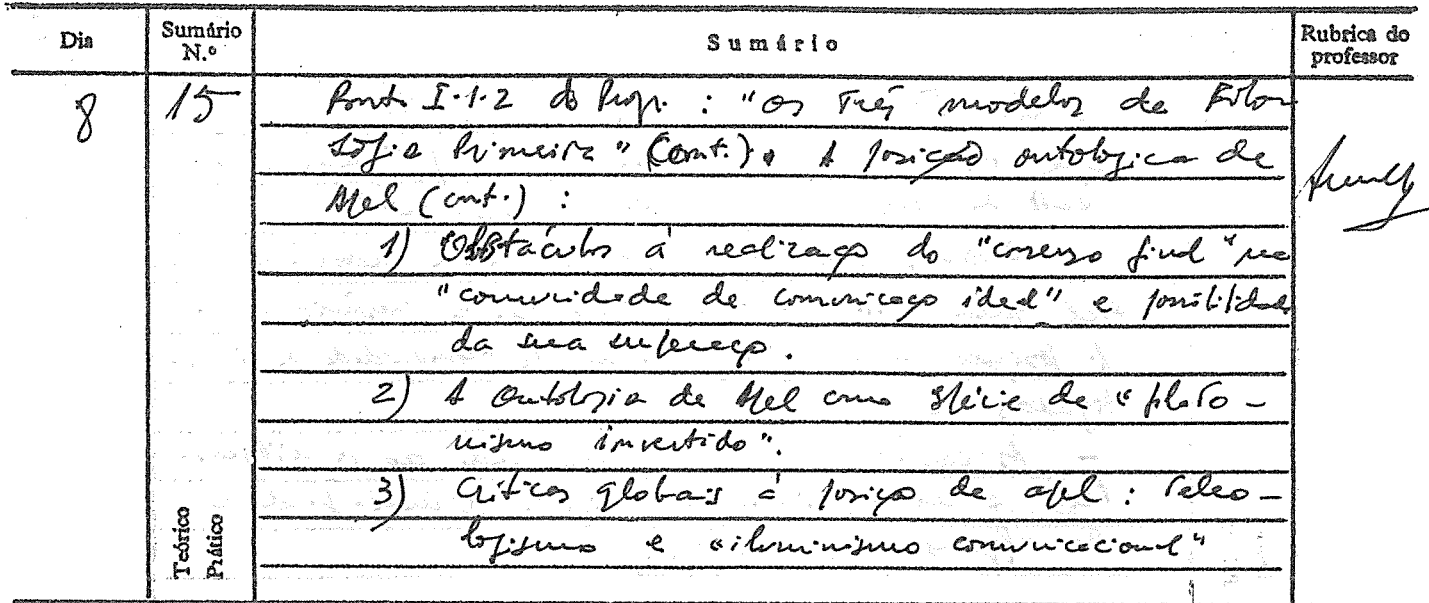 Dia
Sumário N.º
Sumário
Rubrica do professor
8
15
Ponto I.1.2 do Progr. : "Os Três modelos de Filo-
sofia Primeira" (Cont.). A posição ontológica de
Apel (cont.) :
1) Obstáculos à realização do "consenso final" na
"comunidade de comunicação ideal" e possibilidade
da sua superação.
2) A Ontologia de Apel como espécie de "plato-
nismo invertido".
3) Críticas globais à posição de Apel : Teleo-
logismo e "iluminismo comunicacional"
Teórico
Prático